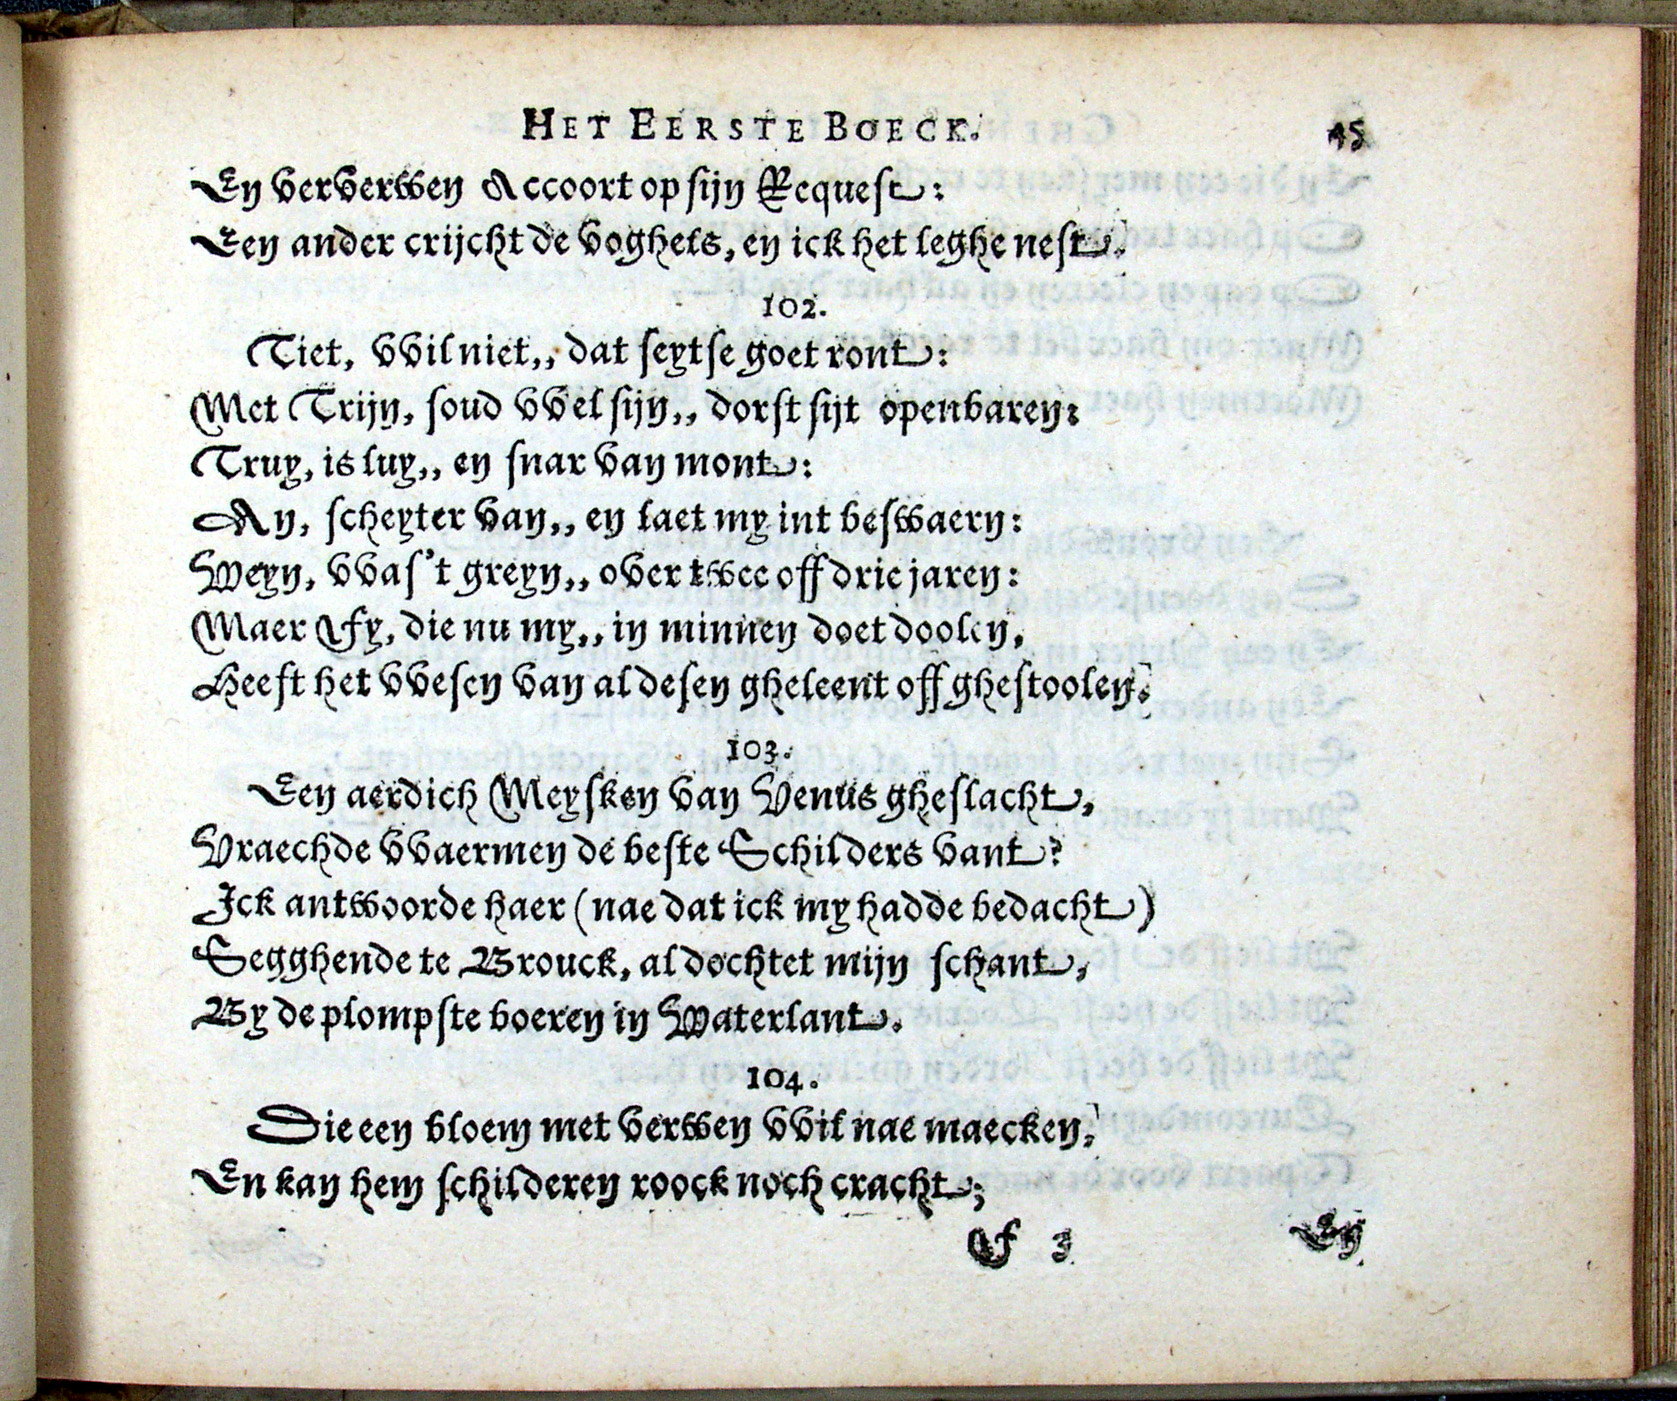 HET EERSTE BOECK. 45
En ververwen Accoort op sijn Request:
Een ander crijcht de voghels, en ick het leghe nest.
102.
Tiet, vvil niet,, dat seytse goet ront:
Met Trijn, soud vvel sijn,, dorst sijt openbaren:
Truy, is luy,, en snar van mont:
Ay, scheyter van,, en laet my int beswaern:
Weyn, vvas't greyn,, over twee off drie jaren:
Maer Fy, die nu my,, in minnen doet doolen,
Heeft het vvesen van al desen gheleent off ghestoolen.
103.
Een aerdich Meysken van Venus gheslacht,
Vraechde vvaermen de beste Schilders vant?
Ick antwoorde haer (nae dat ick my hadde bedacht)
Segghende te Brouck, al dochtet mijn schant,
By de plompste boeren in Waterlant.
104.
Die een bloem met verwen vvil nae maecken,
En kan hem schilderen roock noch cracht;
F 3 En